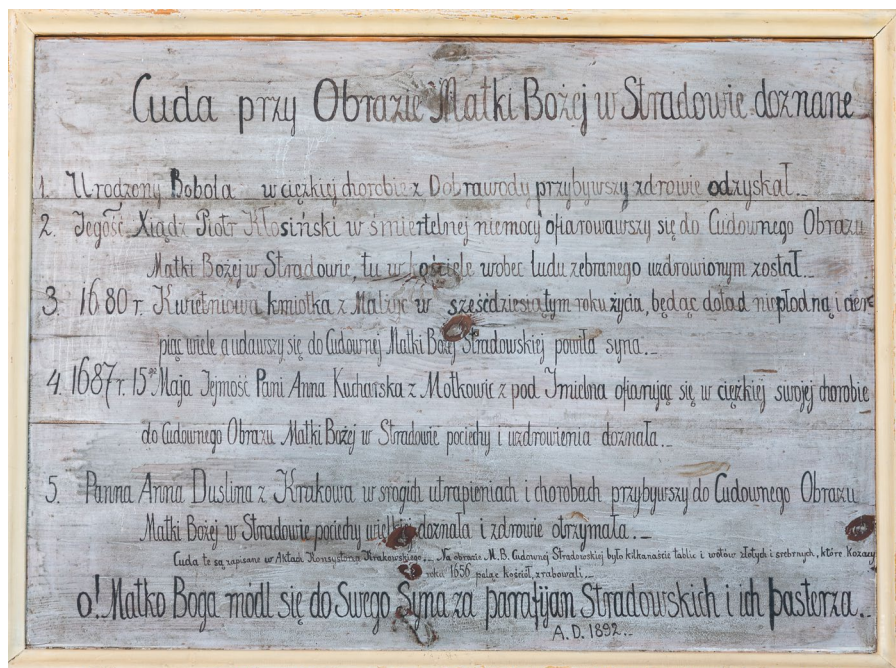 Cuda przy Obrazie Matki Bożej w Stradowie doznane
1. Urodzony Bobola w ciężkiej chorobie z Dobrawody przybywszy zdrowie odzyskał.
2. Jegość Xiądz Piotr Kłosiński w śmiertelnej niemocy ofiarowawszy się do Cudownego Obrazu
Matki Bożej w Stradowie, tu w kościele wobec ludu zebranego uzdrowionym został.
3. 1680 r. Kwietniowa kmiotka z Malżyc w sześćdziesiątym roku życia, będąc dotąd niepłodną i cier-
piąc wiele a udawszy się do Cudownej Matki Bożej Stradowskiej powiła syna.
4. 1687 r. 15go Maja Jejmość Pani Anna Kucharska z Motkowic z pod Imielna ofiarując się w ciężkiej swojej chorobie
do Cudownego Obrazu Matki Bożej w Stradowie pociechy i uzdrowienia doznała.
5. Panna Anna Duslina z Krakowa w srogich utrapieniach i chorobach przybywszy do Cudownego Obrazu
Matki Bożej w Stradowie pociechy wielkiej doznała i zdrowie otrzymała.
Cuda te są zapisane w Aktach Konsystorza Krakowskiego. Na obrazie M.B. Cudownej Stradowskiej było kilkanaście tablic i wotów złotych i srebrnych, które kozacy
roku 1656 paląc kościół, zrabowali.
o! Matko Boga módl się do Swego Syna za parafijan Stradowskich i ich pasterza.
A.D. 1892.